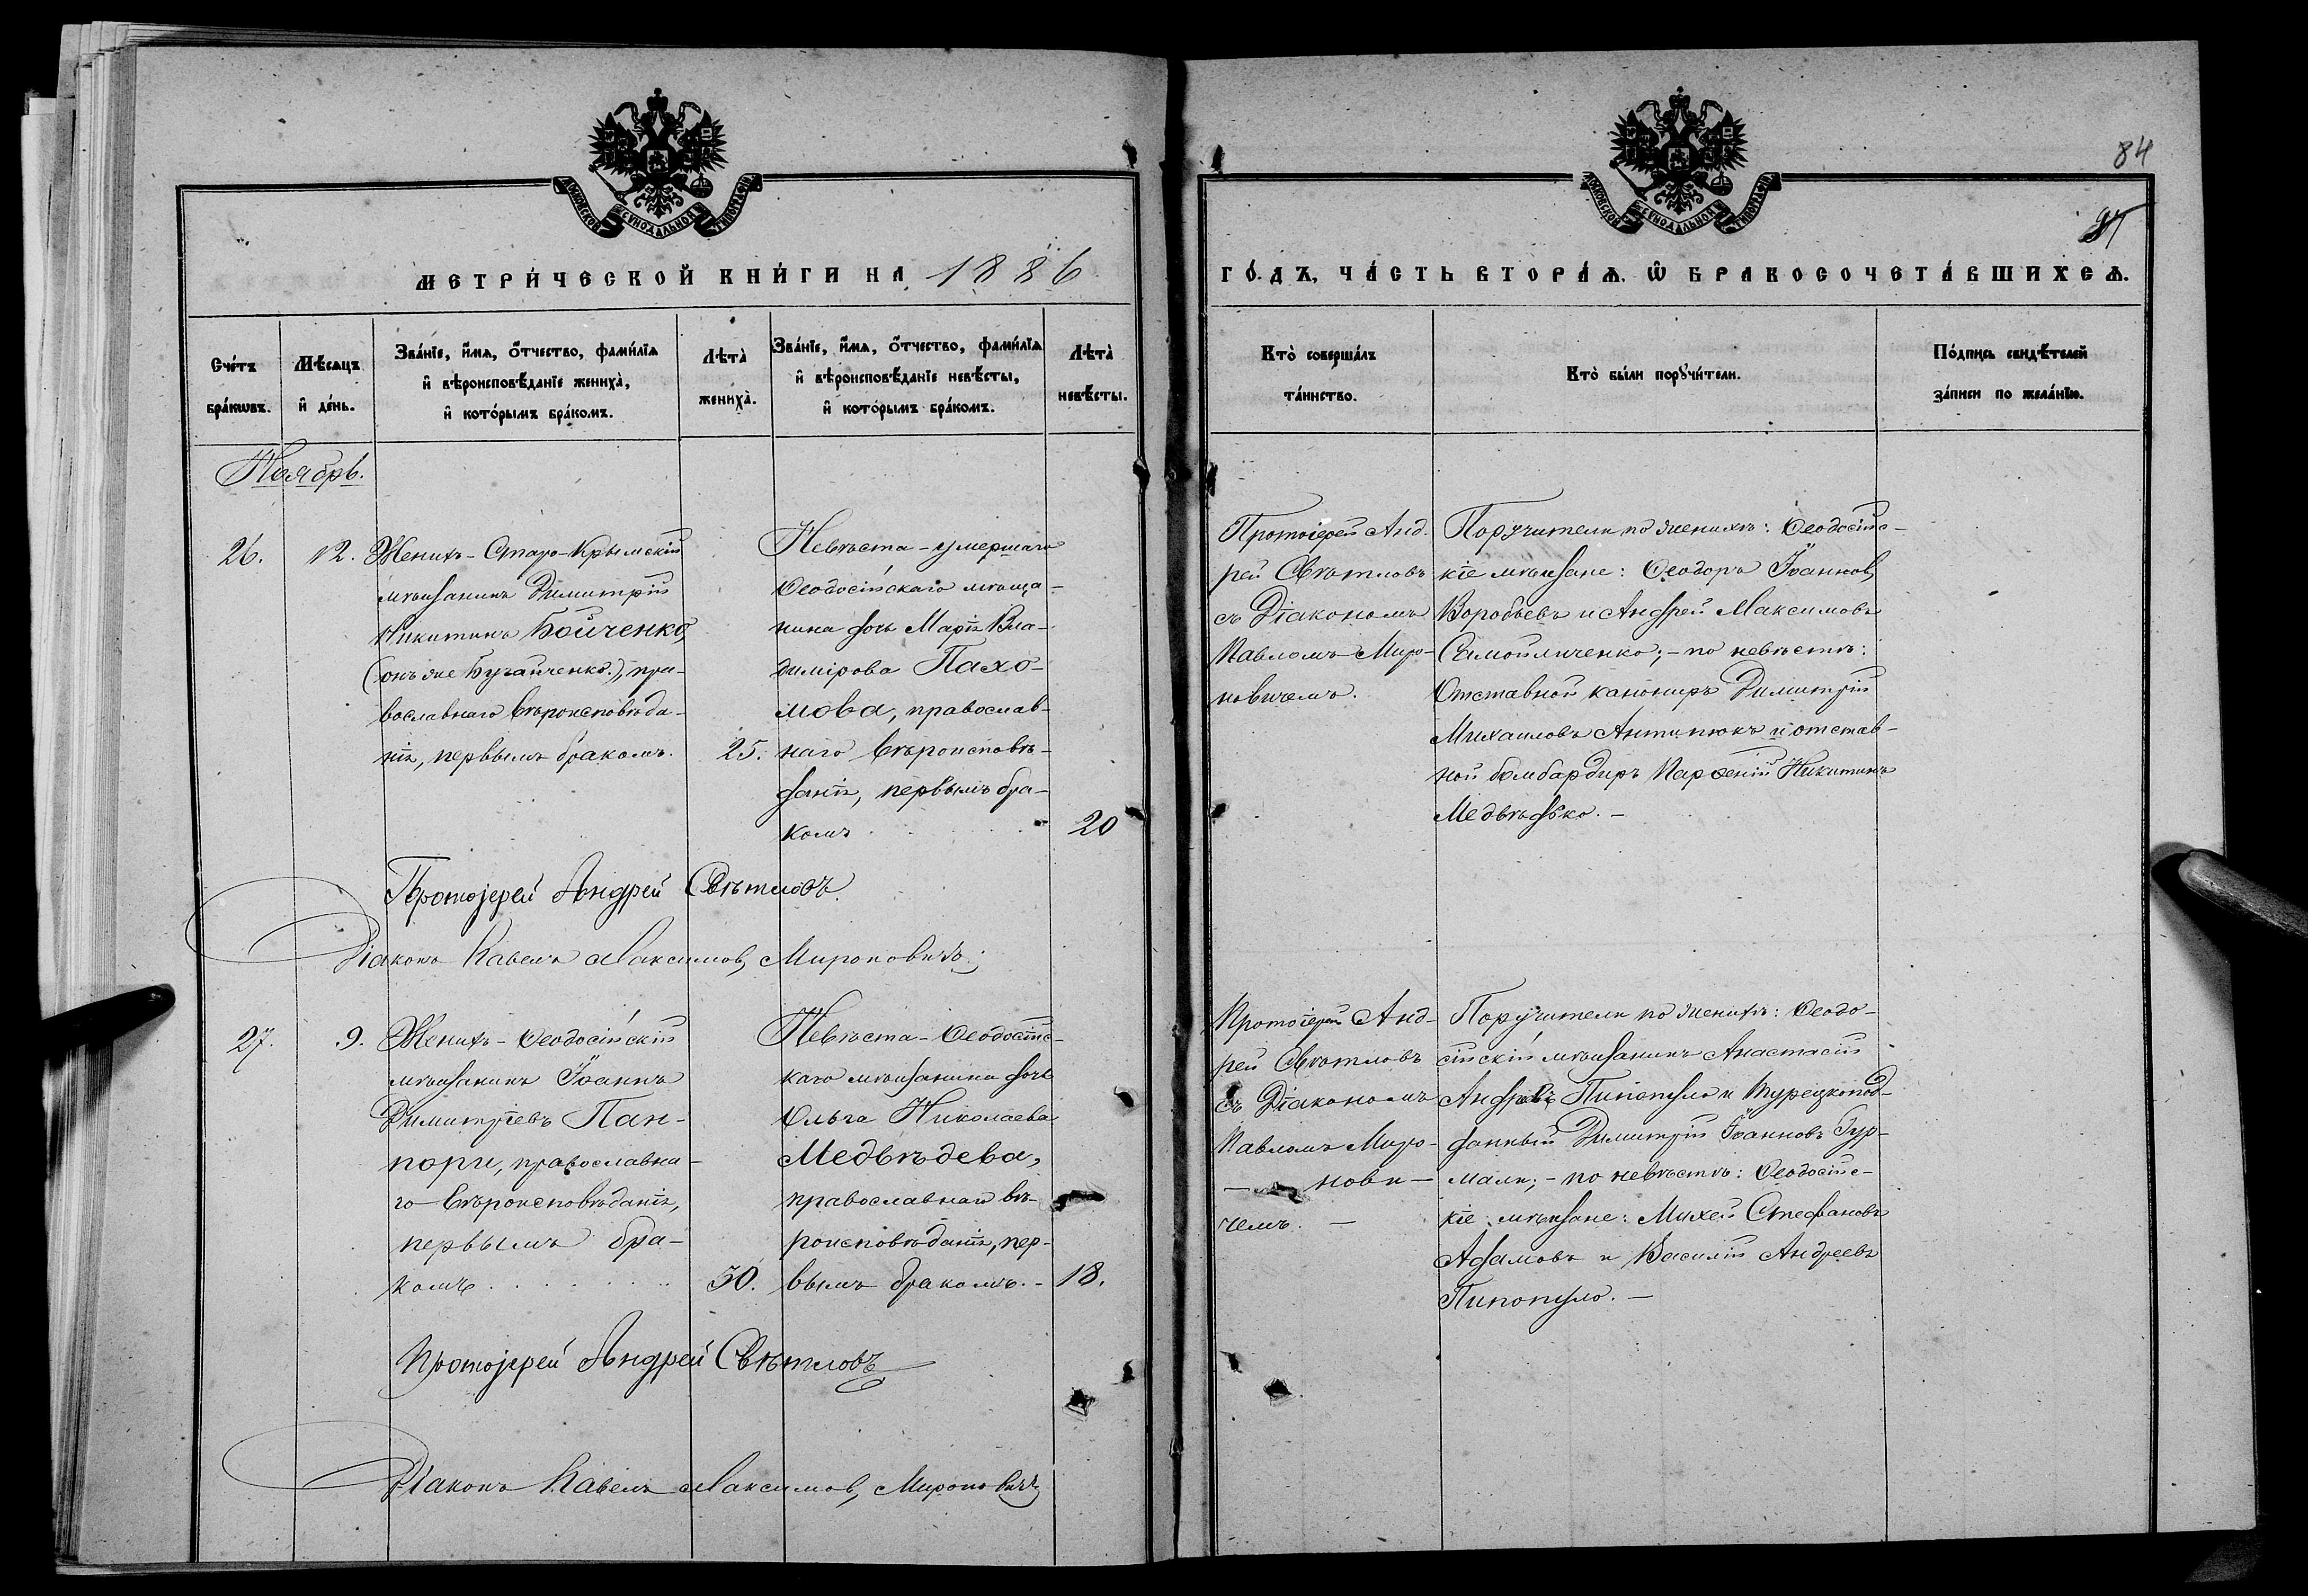 84
97
МОСКОВСКОЙ СѴНОДАЛЬНОЙ ТИПОГРАФІИ
МОСКОВСКОЙ СѴНОДАЛЬНОЙ ТИПОГРАФІИ
МЕТРИ́ЧЕСКОЙ КНИ́ГИ НА 1886
ГО́ДЪ, ЧА́СТЬ ВТОРА́Ѧ, Ѿ БРАКОСОЧЕТА́ВШИХСѦ.
Сче́тъ бра́кѡвъ.
Мѣ́сѧцъ и҆ де́нь.
Зва́нїе, и҆́мѧ, о҆́тчество, фами́лїѧ
и҆ вѣроисповѣ́данїе жениха̀,
и҆ кото́рымъ бра́комъ.
Лѣта̀ жениха̀.
Зва́нїе, и҆́мѧ, о҆́тчество, фами́лїѧ
и҆ вѣроисповѣ́данїе невѣ́сты,
и҆ кото́рымъ бра́комъ.
Лѣта̀ невѣ́сты.
Кто̀ соверша́лъ
та́инство.
Кто̀ бы́ли порꙋчи́тели.
По́дпись свидѣ́телей
за́писи по жела́нїю.
Ноябрь.
26.
12.
Женихъ - Старо-Крымскій
мѣщанинъ Димитрій
Никитинъ Бойченко,
(онъ же Бугайченко), пра-
вославнаго вѣроисповѣда-
нія, первымъ бракомъ.
25.
Невѣста - умершаго
Ѳеодосійскаго мѣща-
нина дочь Марія Вла-
димірова Пахо-
мова, православ-
наго вѣроисповѣ-
данія, первымъ бра-
комъ
20
Протоіерей Анд-
рей Свѣтловъ
съ Діакономъ
Павломъ Миро-
новичемъ.
Поручители по женихѣ: Ѳеодосійс-
кіе мѣщане: Ѳеодоръ Іоанновъ
Воробьевъ и Андрей Максимовъ
Самойличенко; - по невѣстѣ:
Отставной канониръ Димитрій
Михаиловъ Антипюкъ и отстав-
ной бомбардиръ Парѳеній Никитинъ
Медвѣдько. -
Протоіерей Андрей Свѣтловъ.
Діаконъ Павелъ Максимовъ Мироновичъ.
27.
9.
Женихъ - Ѳеодосійскій
мѣщанинъ Іоаннъ
Димитріевъ Пан-
порги, православна-
го вѣроисповѣданія,
первымъ бра-
комъ
30.
Невѣста - Ѳеодосійс-
каго мѣщанина дочь
Ольга Николаева
Медвѣдева,
православнаго вѣ-
роисповѣданія, пер-
вымъ бракомъ. -
18.
Протоіерей Анд-
рей Свѣтловъ
съ Діакономъ
Павломъ Миро-
нови-
чемъ. -
Поручители по женихѣ: Ѳеодо-
сійскій мѣщанинъ Анастасій
Андреевъ Пипопуло и турецкопод-
данный Димитрій Іоанновъ Гур-
мали; - по невѣстѣ: Ѳеодосійс-
кіе мѣщане: Михей Стефановъ
Адамовъ и Василій Андреевъ
Пипопуло. -
Протоіерей Андрей Свѣтловъ
Діаконъ Павелъ Максимовъ Мироновичъ